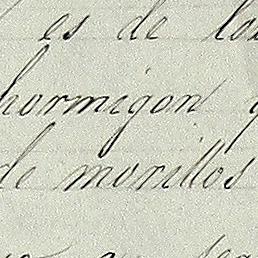 es de
hormigon
de morillos